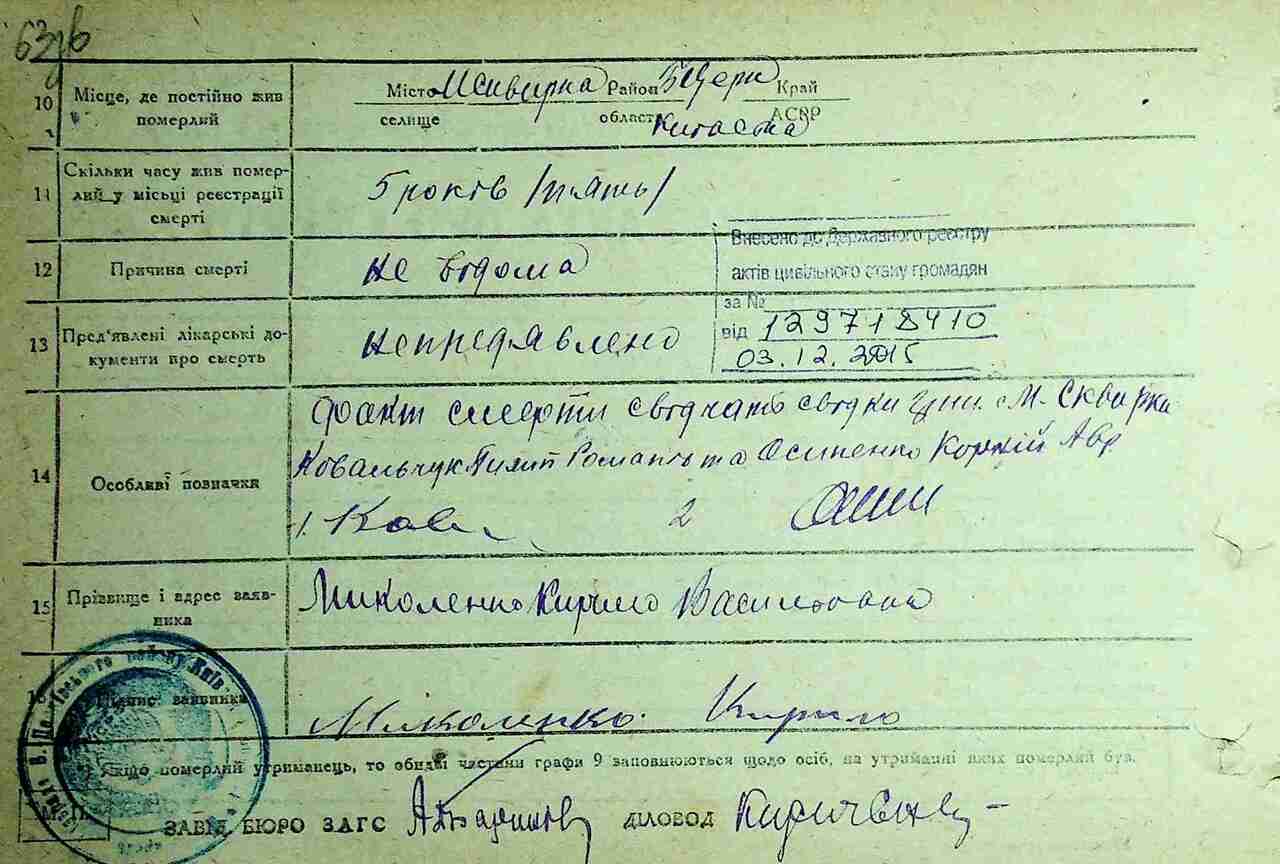 63зв
10 Місце, де постійно жив померлий
Місто селище Район область Київська Край АСРР
11 Скільки часу жив померлий у місці реєстрації смерті
5 років /пять/
12 Причина смерті
не відома
Внесено до Державного реєстру
актів цивільного стану громадян
за №
від 129718410
03.12.2015
13 Пред'явлені лікарські документи про смерть
Непредявлено
14 Особливі позначки
факт смерти свідчать свідки м. Сквирка
Ковальчук Пилип та Осипенко Корній Авр
1. Ков 2
15 Прізвище і адрес заявника
Миколенко Кирило
Підпис заявника
Миколенко Кирило
Якщо померлий утриманець, то обидві частини графи 9 заповнюються щодо осіб, на утриманні яких померлий був.
ЗАВІД БЮРО ЗАГС ДІЛОВОД